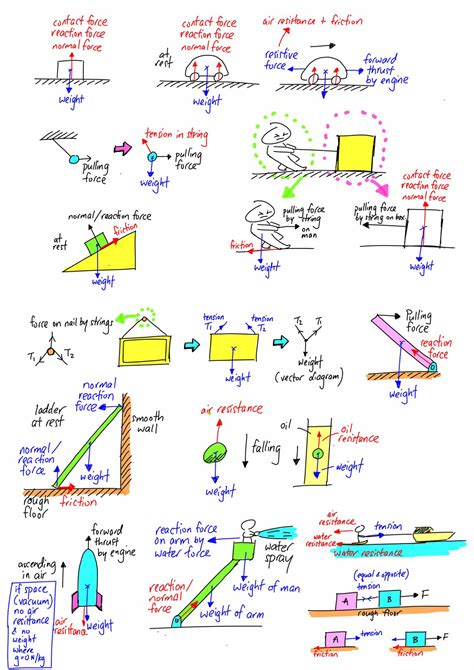 contact force
reaction force
normal force
weight
at
rest
contact force
reaction force
normal force
weight
air resistance + friction
resistive
force
forward
thrust by
engine
weight
pulling
force
tension in string
pulling
force
weight
normal/reaction force
at
rest
friction
weight
pulling force
by string
on
man
friction
weight
pulling force
by string on box
contact force
reaction force
normal force
weight
force on nail by strings
T₁
T₂
tension
T₁
tension
T₂
weight
T₁
T₂
weight
(vector diagram)
Pulling
force
reaction
force
weight
normal
reaction
force
ladder
at rest
smooth
wall
normal/
reaction
force
weight
rough
floor
friction
air resistance
falling
weight
oil
oil
resistance
weight
forward
thrust
by engine
ascending
in air
if space
(vacuum)
no air
resistance
& no
weight
where
g=0N/kg
air
resistance
weight
reaction force
on arm by
water force
water
spray
weight of man
reaction/
normal
force
weight of arm
air
resistance
tension
water
resistance
water resistance
(equal & opposite)
tension
A
B
F
rough floor
A
tension
friction
tension
B
F
friction